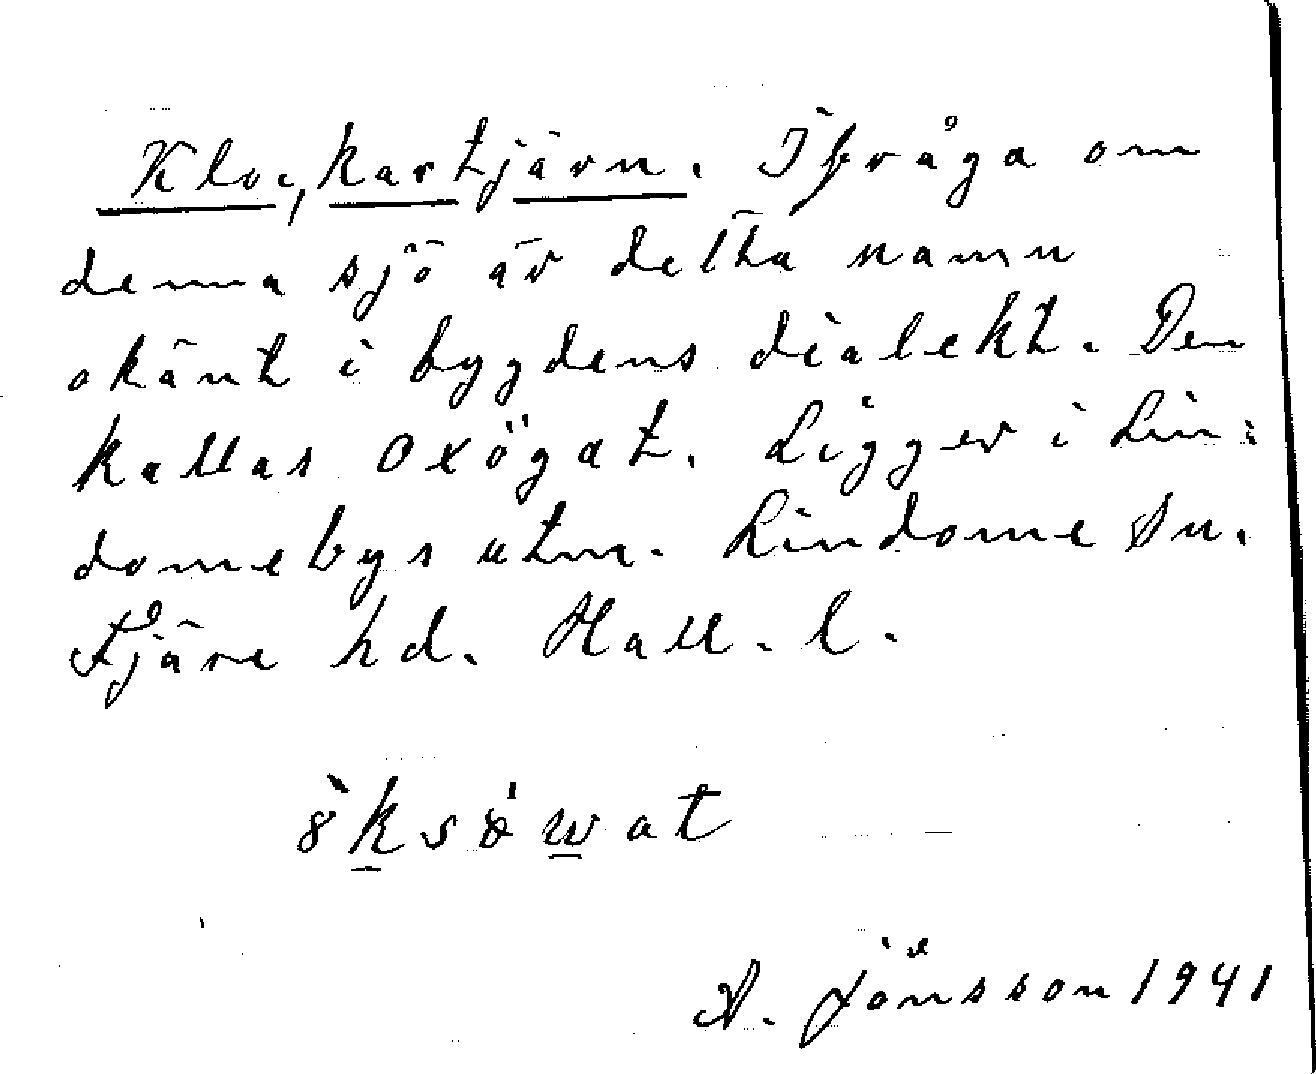 Klockartjärn. I fråga om
denna sjö är detta namn
okänt i bygdens dialekt. Den
kallas Oxögat. Ligger i Lin-
domebys utm. Lindome sn.
Fjäre hd. Hall. l.
A. Jönsson 1941